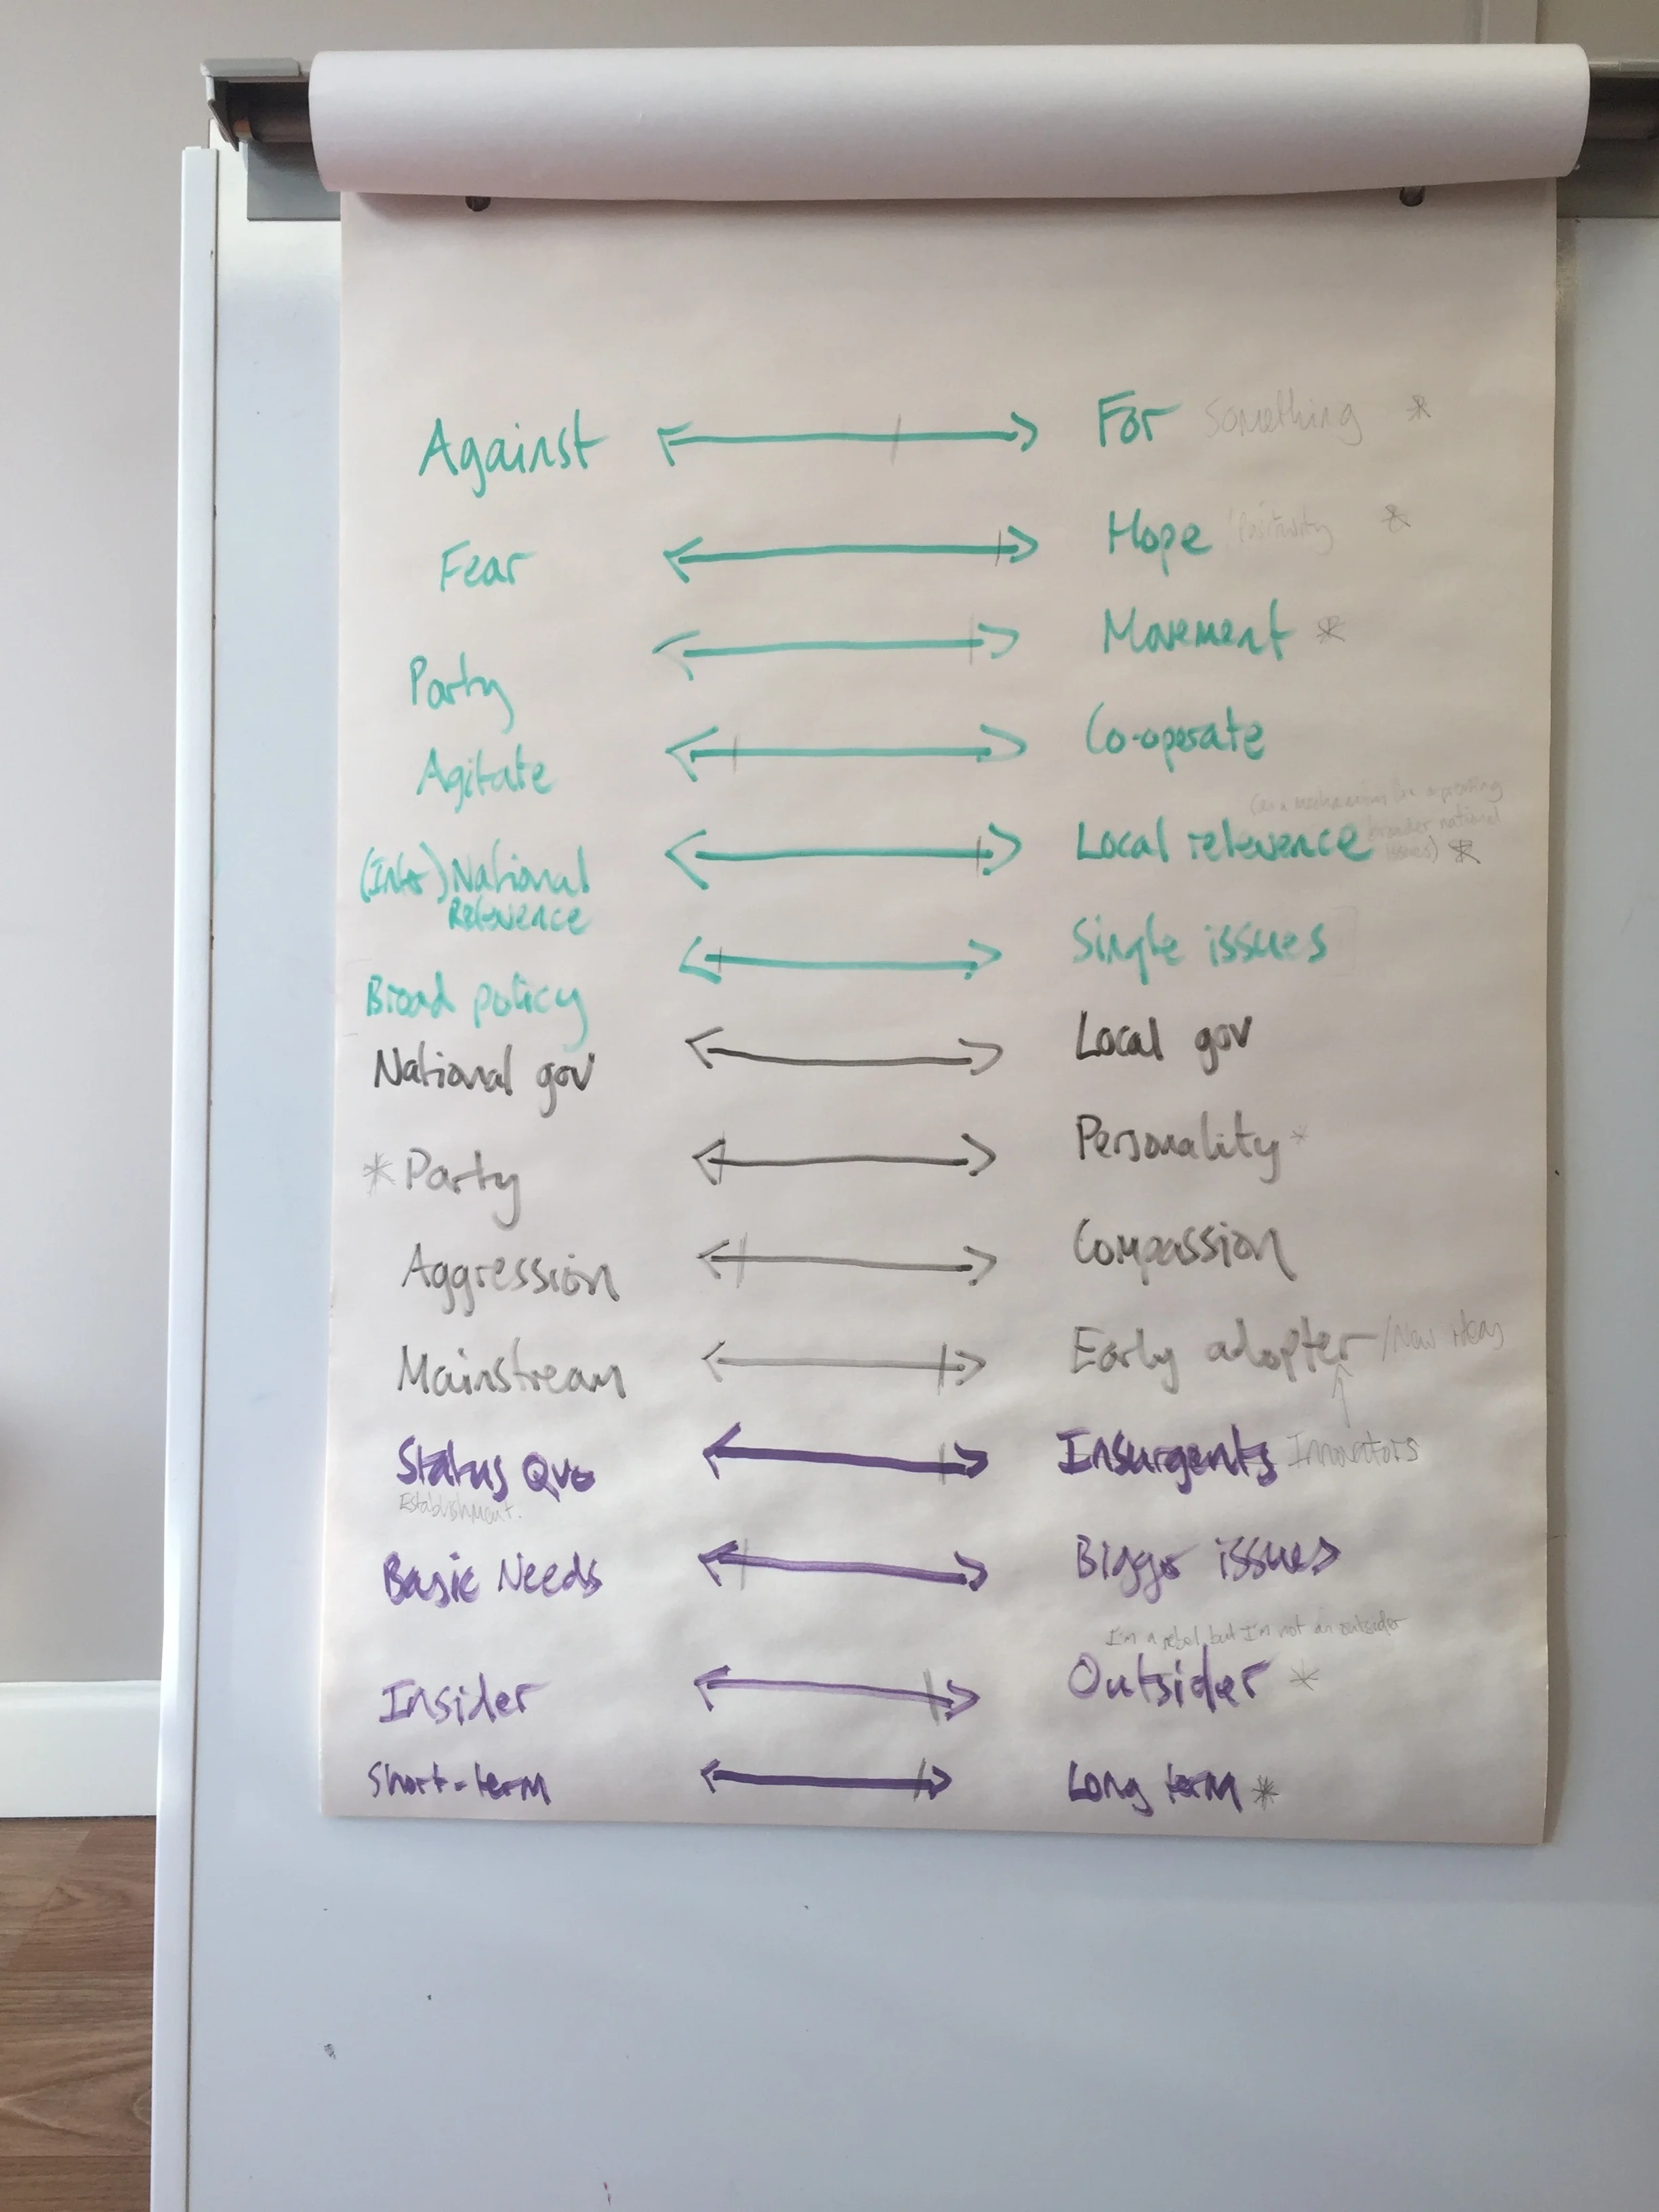 Against For Something *
Fear Hope Positivity *
Party Movement *
Agitate Co-operate
(as a mechanism for
broader national
issues) *
(Inter) National Local relevence
Relevence
Broad policy Single issues
National gov Local gov
* Party Personality *
Aggression Compassion
Mainstream Early adopter /New ideas
Status Quo Insurgents Innovators
Establishment.
Basic Needs Bigger issues
I'm a rebel but I'm not an outsider
Insider Outsider *
Short-term Long term *